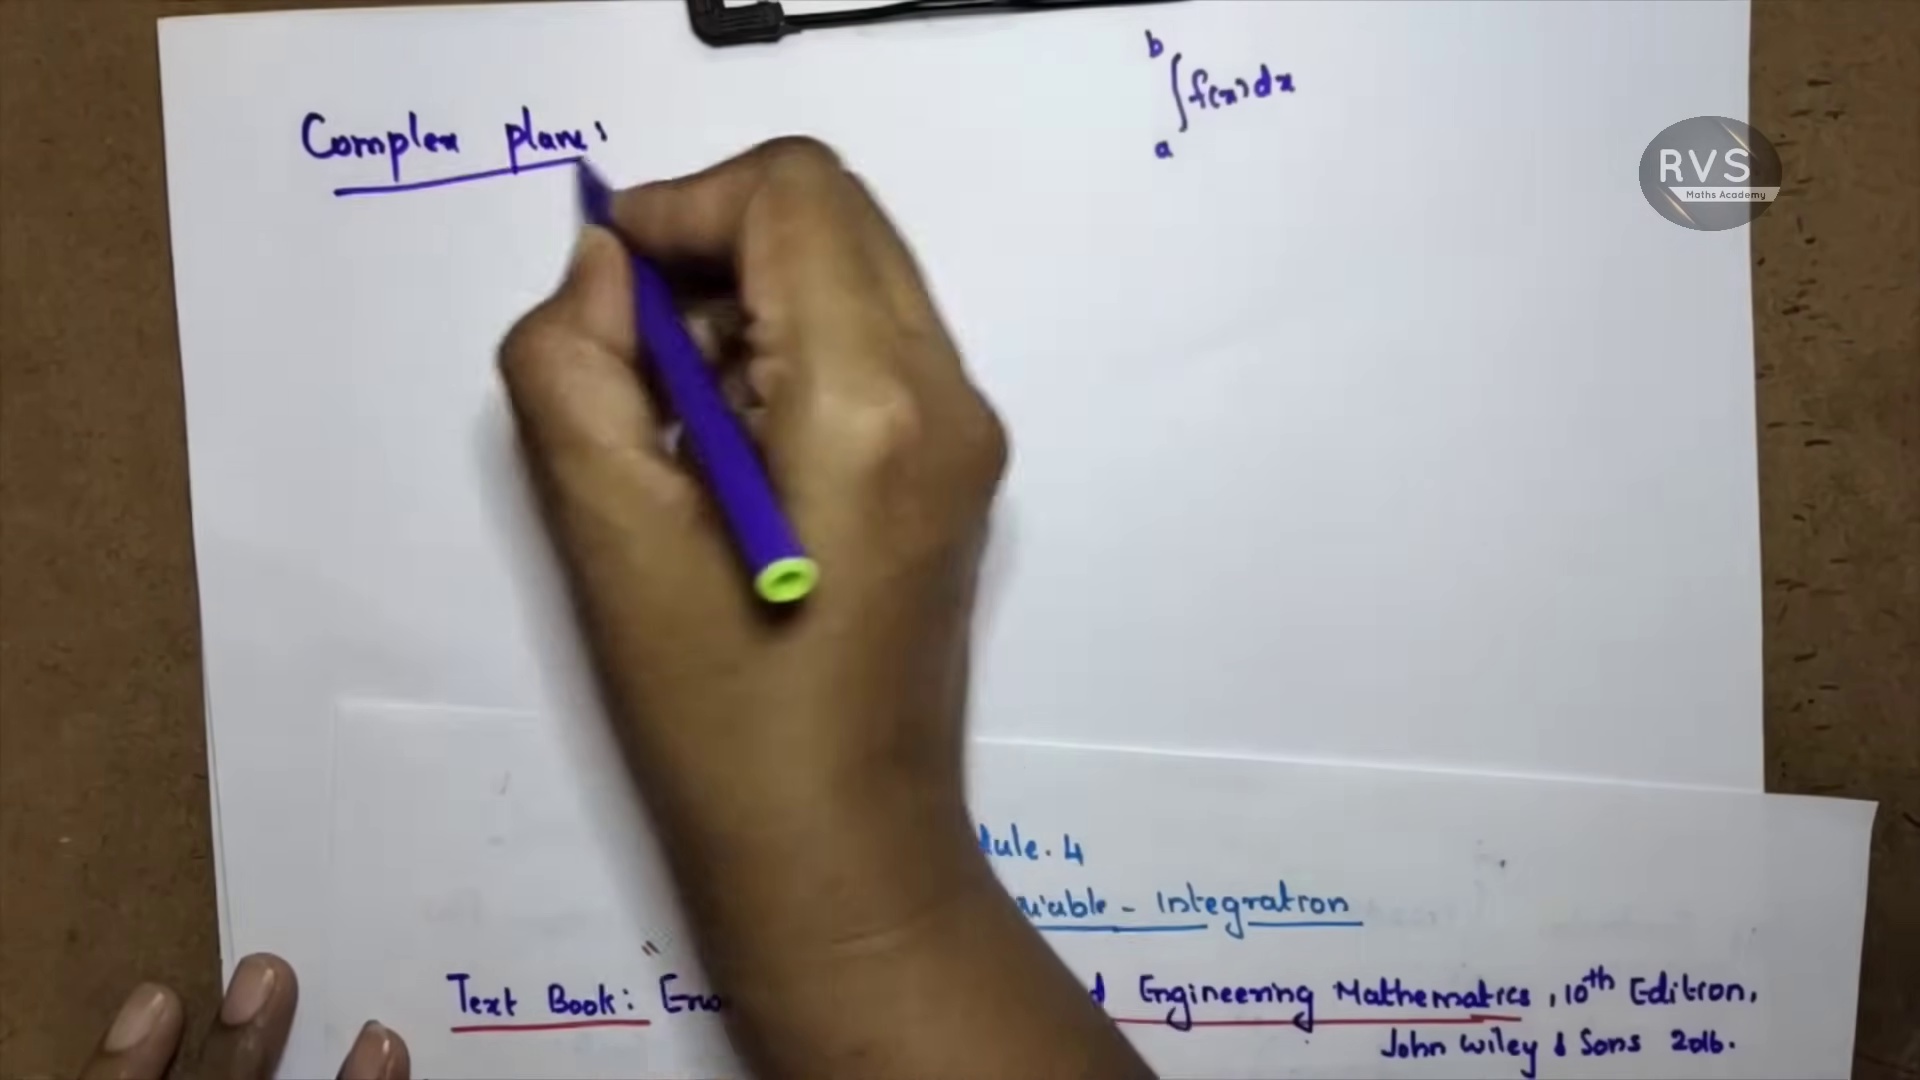 Complex plane:
b
∫f(x)dx
a
RVS
Maths Academy
dule. 4
riable - Integration
Text Book: Engineering Mathematics, 10th Edition,
John Wiley & Sons 2016.